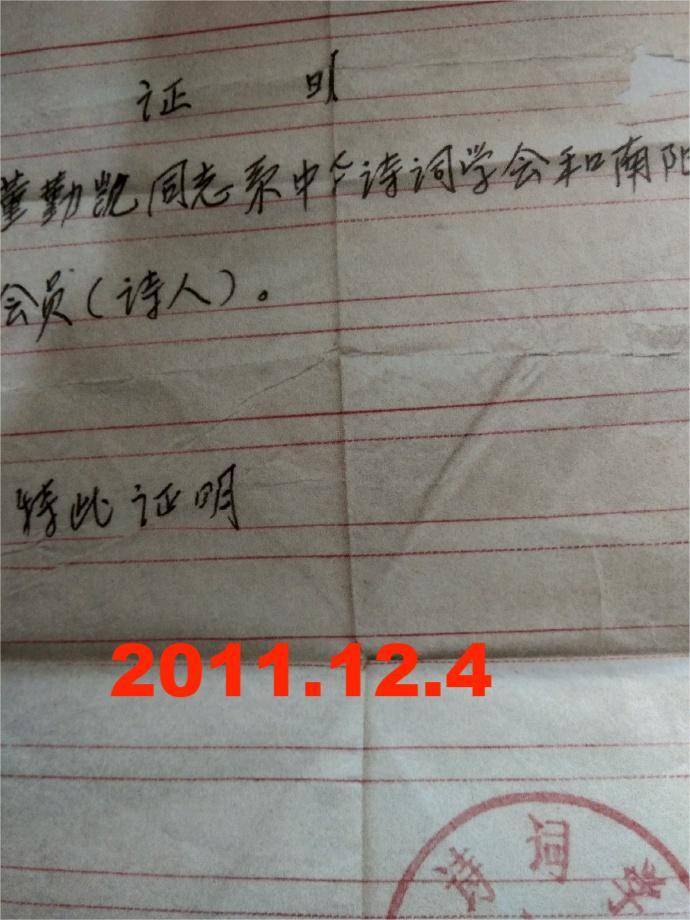 证 明
董勤凯同志系中华诗词学会和南阳
会员（诗人）。
特此证明
2011.12.4
诗词学